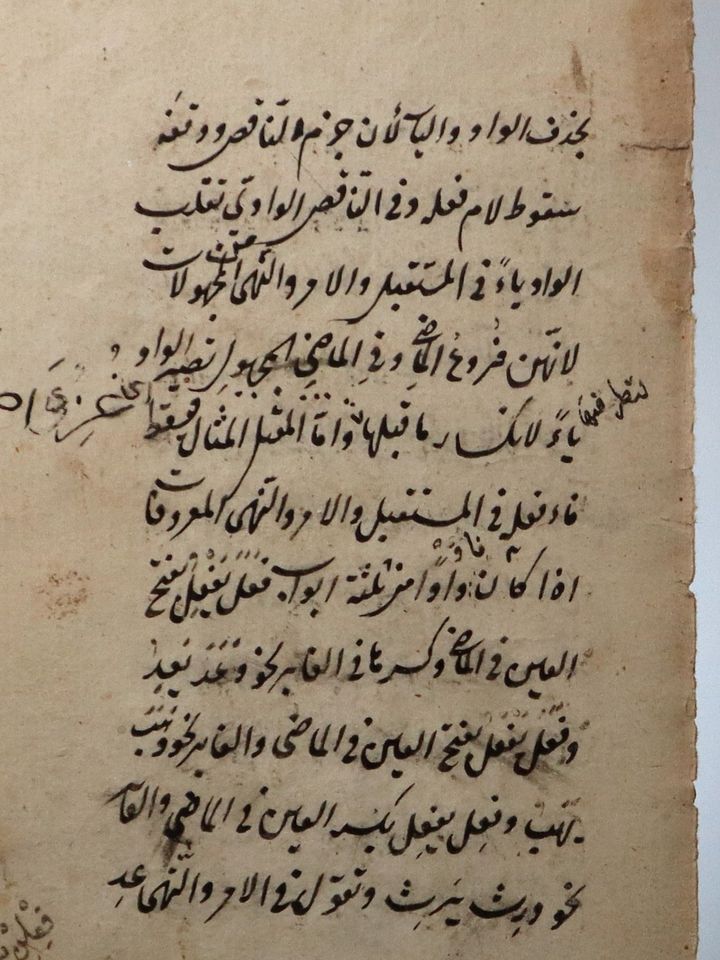 بحذف الواو والياء لأن جزم الناقص ووقفه
سقوط لام فعله وفى النّاقص الواوىّ تقلب
الواو ياءً فى المستقبل والامر والنّهى المجهولات
لانّهنّ فروعُ الماضى وفِى الماضِى المجهولِ تصير الواو
ياءً لانكسار ما قبلها وامّا المعتل المثال فيسقط
فاء فعله فى المستقبل والامر والنّهى المعروفات
اذا كان واوًا من ثلثة ابواب فَعَلَ يَفْعِلُ بفتح
العين فى الماضى وكسرها فى الغابر نحو وَعَدَ يَعِدُ
وفَعَلَ يَفْعَلُ بفتح العين فى الماضى والغابر نحو وَهَبَ
يَهَبُ وفَعِلَ يفعِل بكسر العين فى الماضى والغابر
نحو ورِث يَرِث وتقول فى الامر والنّهى عِد